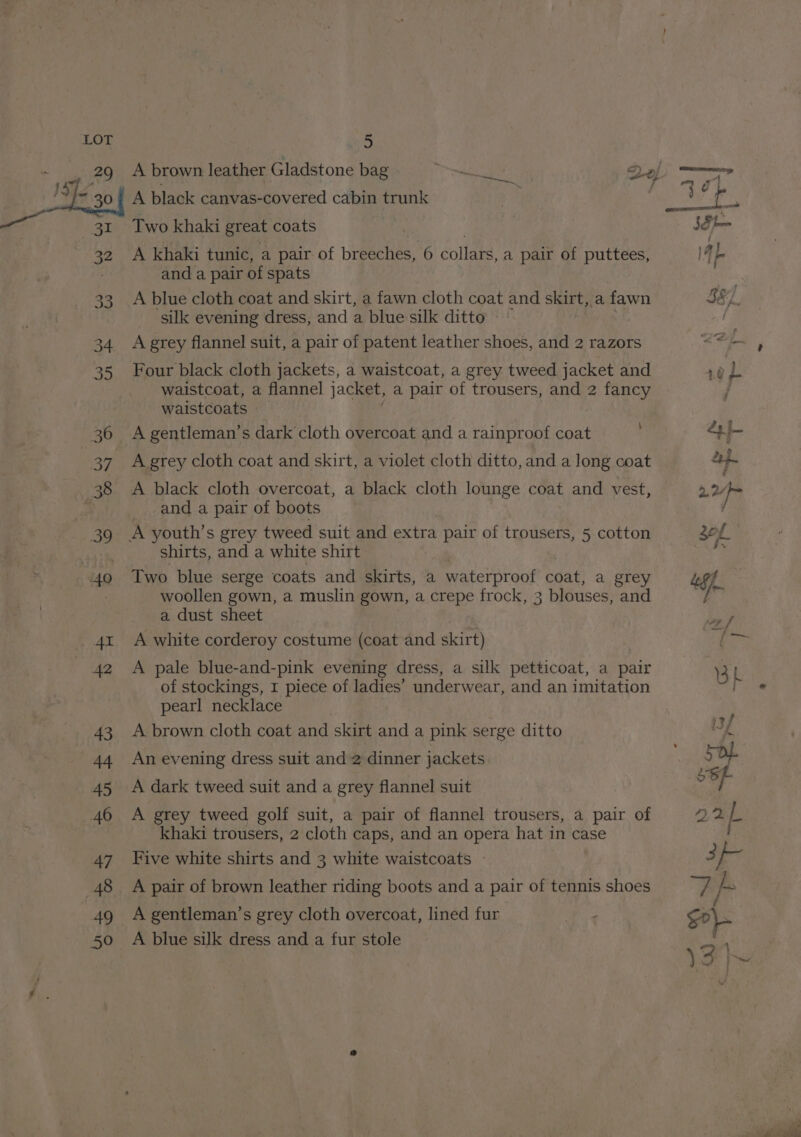 LOT 5
29 A brown leather Gladstone bag
15/- 30 { A black canvas-covered cabin trunk
31 Two khaki great coats
32 A khaki tunic, a pair of breeches, 6 collars, a pair of puttees, 19/-
and a pair of spats
33 A blue cloth coat and skirt, a fawn cloth coat and skirt, a fawn 38/-
silk evening dress, and a blue silk ditto
34 A grey flannel suit, a pair of patent leather shoes, and 2 razors
35 Four black cloth jackets, a waistcoat, a grey tweed jacket and
waistcoat, a flannel jacket, a pair of trousers, and 2 fancy
waistcoats
36 A gentleman's dark cloth overcoat and a rainproof coat
37 A grey cloth coat and skirt, a violet cloth ditto, and a long coat
38 A black cloth overcoat, a black cloth lounge coat and vest, 22/-
and a pair of boots
39 A youth's grey tweed suit and extra pair of trousers, 5 cotton 30/-
shirts, and a white shirt
40 Two blue serge coats and skirts, a waterproof coat, a grey
woollen gown, a muslin gown, a crepe frock, 3 blouses, and
a dust sheet
41 A white corderoy costume (coat and skirt)
42 A pale blue-and-pink evening dress, a silk petticoat, a pair
of stockings, 1 piece of ladies' underwear, and an imitation
pearl necklace
43 A brown cloth coat and skirt and a pink serge ditto 13/-
44 An evening dress suit and 2 dinner jackets 50/-
45 A dark tweed suit and a grey flannel suit
46 A grey tweed golf suit, a pair of flannel trousers, a pair of 22/-
khaki trousers, 2 cloth caps, and an opera hat in case
47 Five white shirts and 3 white waistcoats 3/-
48 A pair of brown leather riding boots and a pair of tennis shoes 7/-
49 A gentleman's grey cloth overcoat, lined fur
50 A blue silk dress and a fur stole 13/-